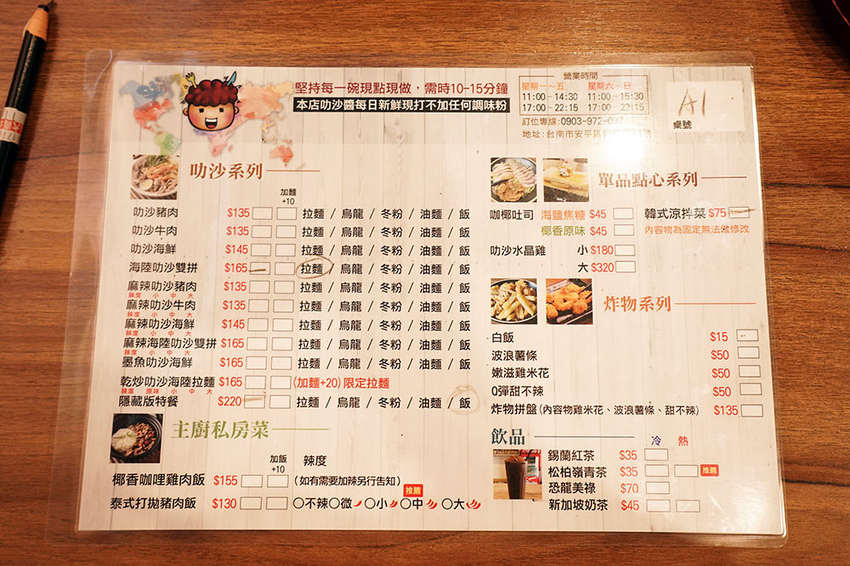 堅持每一碗現點現做，需時10-15分鐘
本店叻沙醬每日新鮮現打不加任何調味粉
營業時間
星期一~五 星期六、日
11:00-14:30 11:00-15:30
17:00-22:15 17:00-22:15
訂位專線:0903-972-
地址:台南市安平區
A1
桌號
叻沙系列
加麵
+10
叻沙豬肉 $135 拉麵 / 烏龍 / 冬粉 / 油麵 / 飯
叻沙牛肉 $135 拉麵 / 烏龍 / 冬粉 / 油麵 / 飯
叻沙海鮮 $145 拉麵 / 烏龍 / 冬粉 / 油麵 / 飯
海陸叻沙雙拼 $165 拉麵 / 烏龍 / 冬粉 / 油麵 / 飯
麻辣叻沙豬肉 $135 拉麵 / 烏龍 / 冬粉 / 油麵 / 飯
辣度 小 中 大
麻辣叻沙牛肉 $135 拉麵 / 烏龍 / 冬粉 / 油麵 / 飯
辣度 小 中 大
麻辣叻沙海鮮 $145 拉麵 / 烏龍 / 冬粉 / 油麵 / 飯
辣度 小 中 大
麻辣海陸叻沙雙拼 $165 拉麵 / 烏龍 / 冬粉 / 油麵 / 飯
辣度 小 中 大
墨魚叻沙海鮮 $165 拉麵 / 烏龍 / 冬粉 / 油麵 / 飯
乾炒叻沙海陸拉麵 $165 (加麵+20) 限定拉麵
辣度 原味 小 中 大
隱藏版特餐 $220 拉麵 / 烏龍 / 冬粉 / 油麵 / 飯
主廚私房菜
加飯
+10
辣度
椰香咖哩雞肉飯 $155 (如有需要加辣另行告知)
推薦
泰式打拋豬肉飯 $130 ○不辣○微 ○小 ○中 ○大
單品點心系列
咖椰吐司 海鹽焦糖 $45 韓式涼拌菜 $75
椰香原味 $45 內容物為固定無法做修改
叻沙水晶雞 小 $180
大 $320
炸物系列
白飯 $15
波浪薯條 $50
嫩滋雞米花 $50
Q彈甜不辣 $50
炸物拼盤(內容物雞米花、波浪薯條、甜不辣) $135
飲品 冷 熱
錫蘭紅茶 $35
松柏嶺青茶 $35 推薦
恐龍美祿 $70
新加坡奶茶 $45